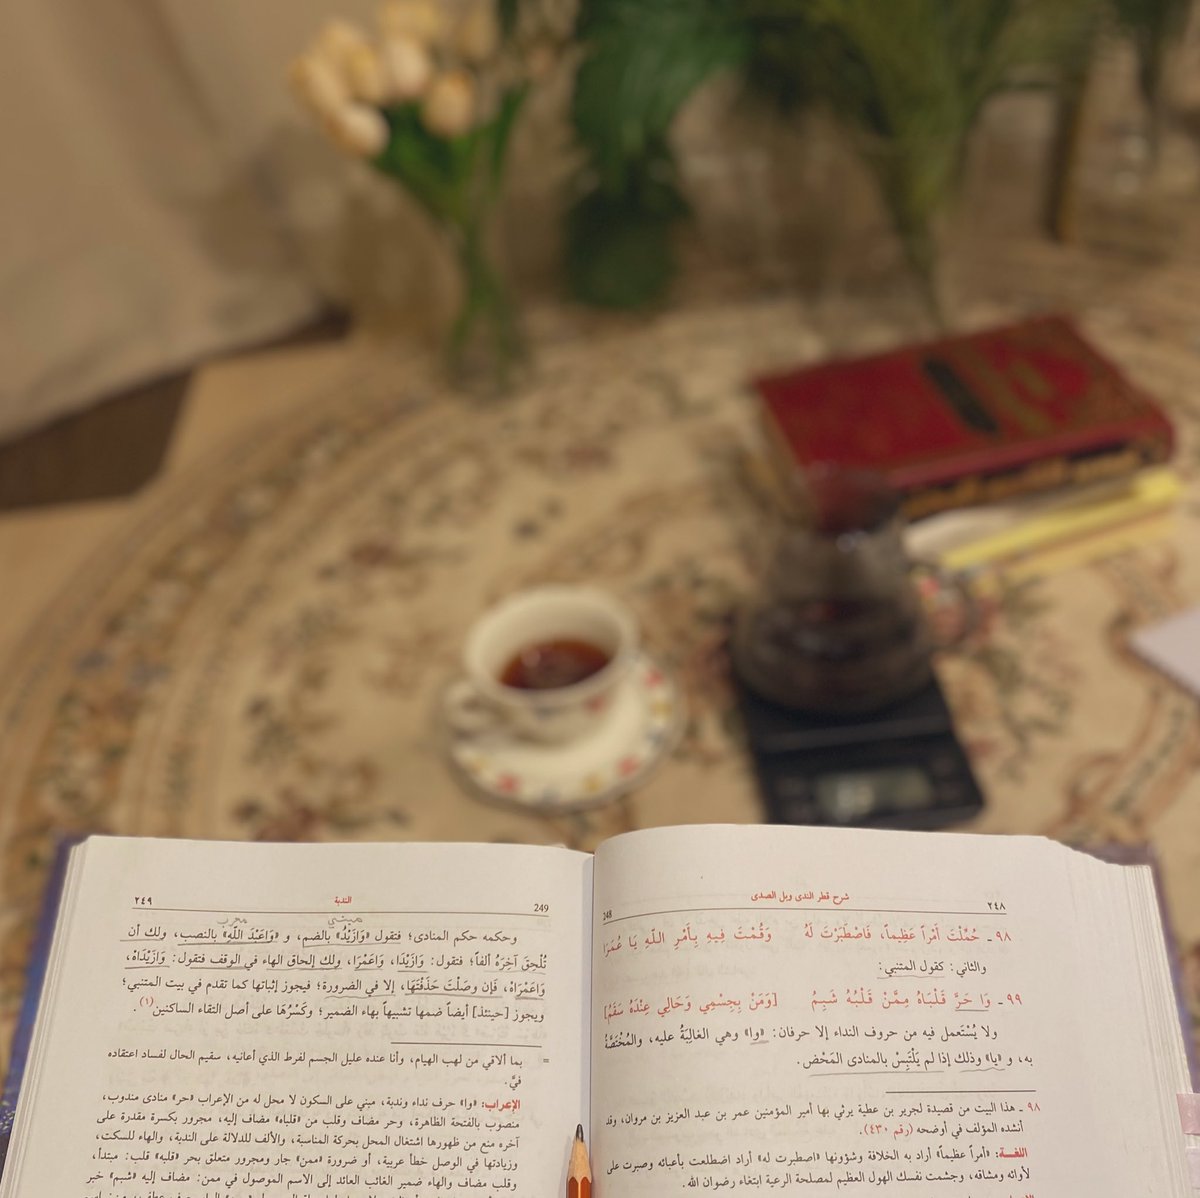 ٢٤٨
شرح قطر الندى وبل الصدى
248
٩٨ ـ حُمِّلْتَ أَمْراً عَظِيماً، فَاصْطَبَرْتَ لَهُ وَقُمْتَ فِيهِ بِأَمْرِ اللّهِ يَا عُمَرَا
والثاني: كقول المتنبي:
٩٩ ـ وَا حَرَّ قَلْبَاهُ مِمَّنْ قَلْبُهُ شَبِمُ [وَمَنْ بِجِسْمِي وَحَالِي عِنْدَهُ سَقَمُ]
ولا يُسْتَعمل فيه من حروف النداء إلا حرفان: «وا» وهي الغالِبَةُ عليه، والمُخْتَصَّةُ
به، و «يا» وذلك إذا لم يَلْتَبِسْ بالمنادى المَحْض.
٩٨ ـ هذا البيت من قصيدة لجرير بن عطية يرثي بها أمير المؤمنين عمر بن عبد العزيز بن مروان، وقد
أنشده المؤلف في أوضحه (رقم ٤٣٠).
اللغـة: «أمراً عظيماً» أراد به الخلافة وشؤونها «اصطبرت له» أراد اضطلعت بأعبائه وصبرت على
لأوائه ومشاقه، وجشمت نفسك الهول العظيم لمصلحة الرعية ابتغاء رضوان الله.
249
الندبة
٢٤٩
مبني
معرب
وحكمه حكم المنادى؛ فتقول «وَازَيْدُ» بالضم، و «وَاعَبْدَ اللّهِ» بالنصب، ولك أن
تُلْحِقَ آخِرَهُ ألفاً؛ فتقول: وَازَيْدَا، وَاعَمْرَا، ولك إلحاق الهاء في الوقف فتقول: وَازَيْدَاهْ،
وَاعَمْرَاهْ، فَإن وصَلْتَ حَذَفْتَهَا، إلا في الضرورة؛ فيجوز إثباتها كما تقدم في بيت المتنبي؛
ويجوز [حينئذ] أيضاً ضمها تشبيهاً بهاء الضمير؛ وكَسْرُهَا على أصل التقاء الساكنين(١).
= بما ألاقي من لهب الهيام، وأنا عنده عليل الجسم لفرط الذي أعانيه، سقيم الحال لفساد اعتقاده
فيَّ.
الإعراب: «وا» حرف نداء وندبة، مبني على السكون لا محل له من الإعراب «حر» منادى مندوب،
منصوب بالفتحة الظاهرة، وحر مضاف وقلب من «قلباه» مضاف إليه، مجرور بكسرة مقدرة على
آخره منع من ظهورها اشتغال المحل بحركة المناسبة، والألف للدلالة على الندبة، والهاء للسكت،
وزيادتها في الوصل خطأ عربية، أو ضرورة «ممن» جار ومجرور متعلق بحر «قلبه» قلب: مبتدأ،
وقلب مضاف والهاء ضمير الغائب العائد إلى الاسم الموصول في ممن: مضاف إليه «شبم» خبر